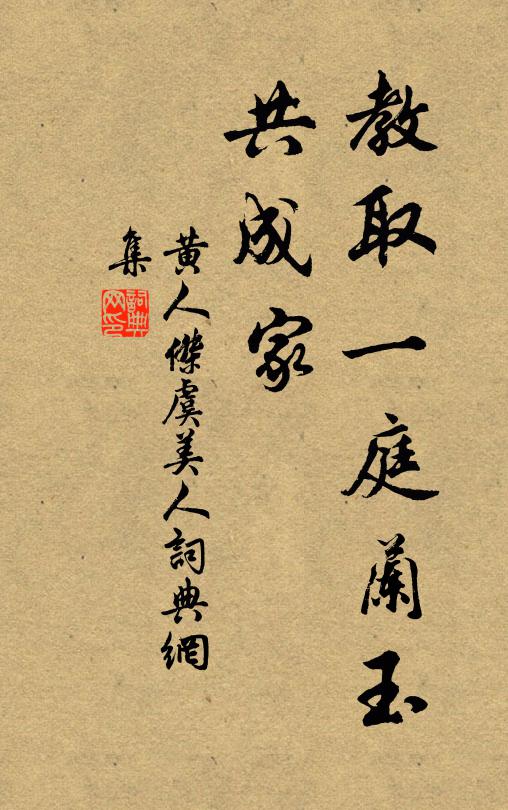 教取一庭蘭玉
共成家
黄人傑虞美人詞典網
集
詞典
网印